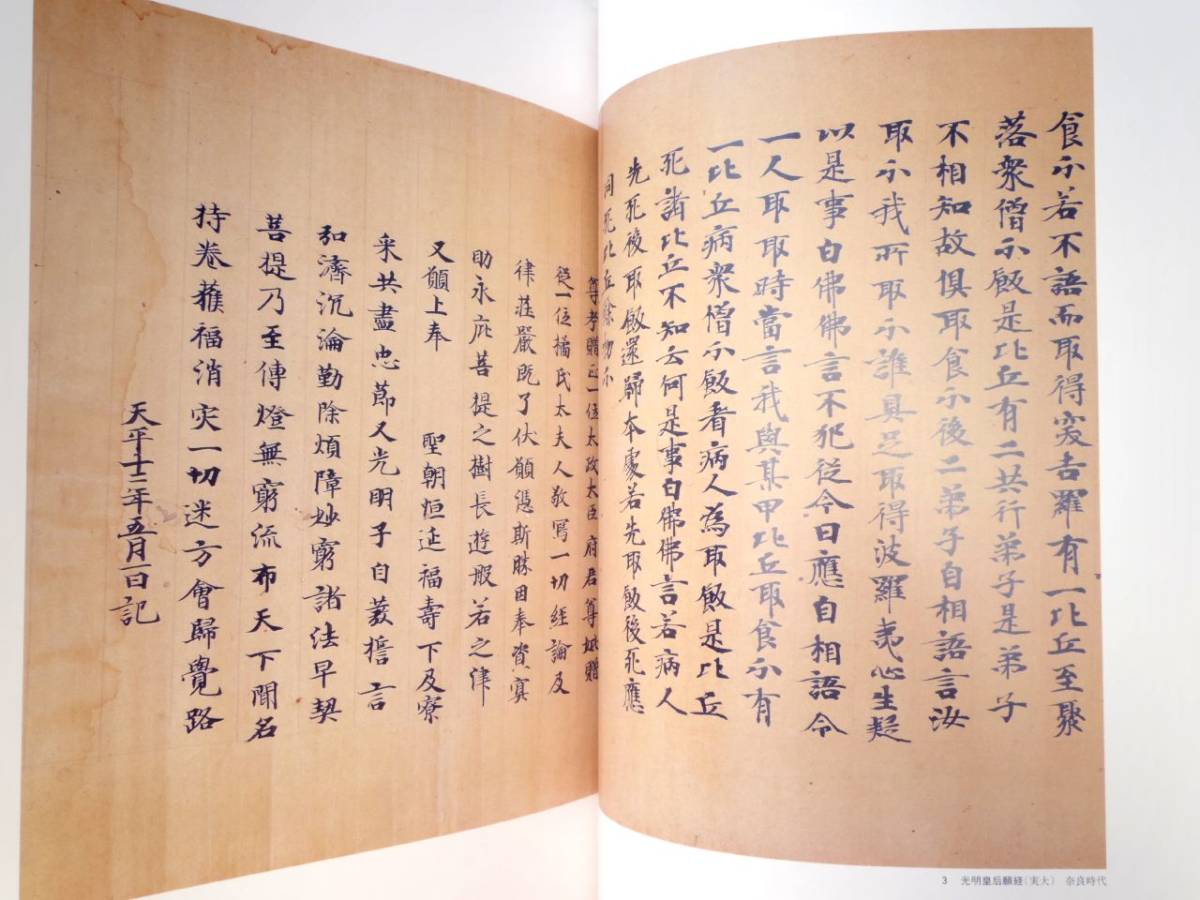 食分若不語而取得突吉羅有一比丘至聚
落衆僧分飯是比丘有二共行弟子是弟子
不相知故俱取食分後二弟子自相語言汝
取分我所取分誰具足取得波羅夷心生疑
以是事白佛佛言不犯從今日應自相語令
一人取取時當言我與某甲比丘取食分有
一比丘病衆僧分飯看病人為取飯是比丘
死諸比丘不知云何是事白佛佛言若病人
先死後取飯還歸本處若先取飯後死應
同死比丘餘物分
尊考贈正一位太政太臣府君尊妣贈
從一位橘氏太夫人敬寫一切經論及
律莊嚴既了伏願憑斯勝因奉資冥
助永庇菩提之樹長遊般若之津
又願上奉 聖朝恒延福壽下及寮
采共盡忠節又光明子自發誓言
弘濟沉淪勤除煩障妙窮諸法早契
菩提乃至傳燈無窮流布天下聞名
持卷獲福消灾一切迷方會歸覺路
天平十二年五月一日記
3 光明皇后願経(実大) 奈良時代